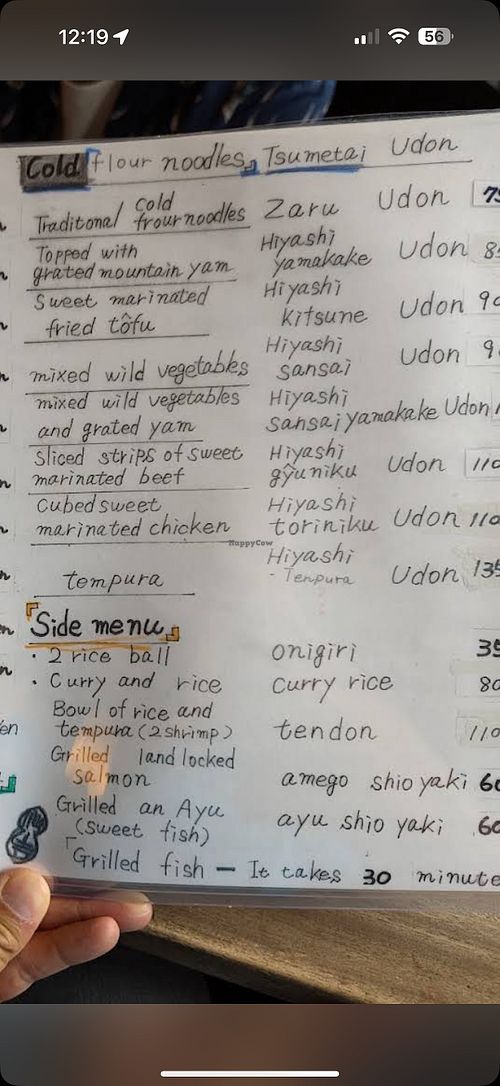 12:19
56
Cold flour noodles Tsumetai Udon
Traditonal cold frournoodles Zaru Udon
Topped with grated mountain yam Hiyashi yamakake Udon
Sweet marinated fried tôfu Hiyashi kitsune Udon
mixed wild vegetables Hiyashi sansai Udon
mixed wild vegetables and grated yam Hiyashi sansai yamakake Udon
Sliced strips of sweet marinated beef Hiyashi gyuniku Udon 110
Cubed sweet marinated chicken Hiyashi toriniku Udon 110
HappyCow
tempura Hiyashi - Tenpura Udon 135
「Side menu」
・2 rice ball onigiri 35
・Curry and rice curry rice 80
Bowl of rice and tempura (2 shrimp) tendon 110
Grilled land locked salmon amego shio yaki 60
Grilled an Ayu (sweet fish) ayu shio yaki 60
「Grilled fish — It takes 30 minute